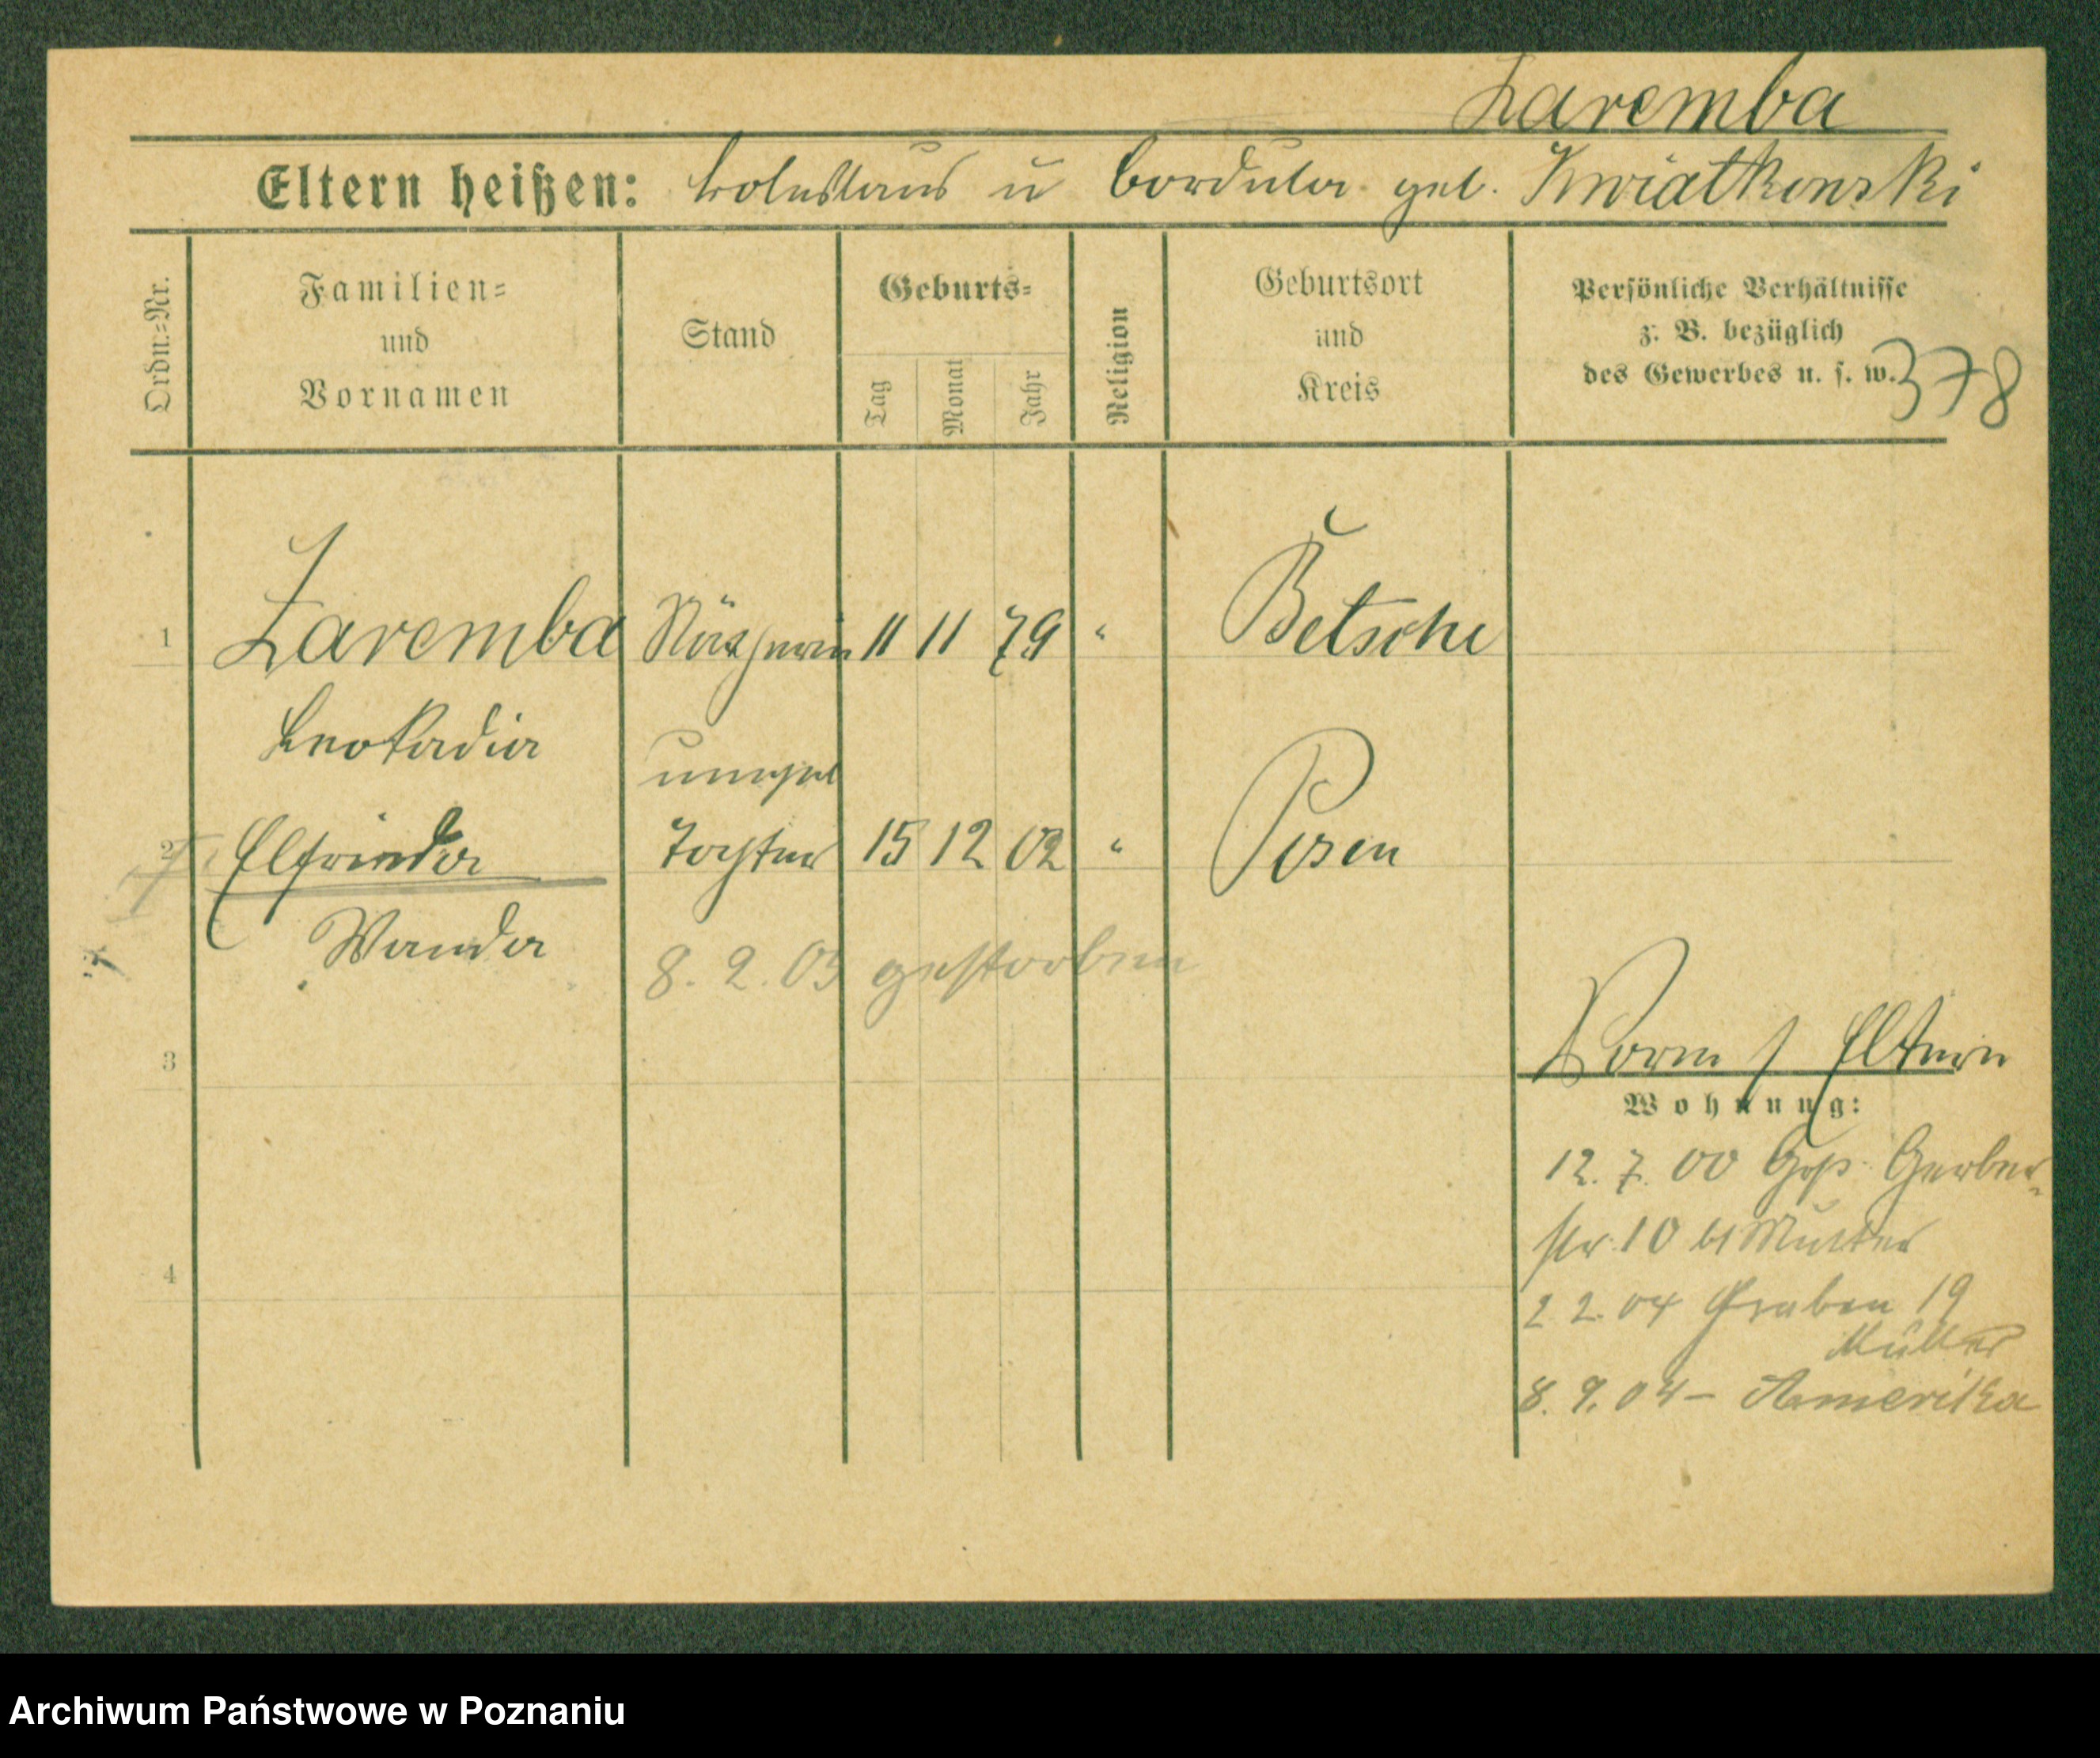 Zaremba
Eltern heißen: Boleslaus u Cordula geb. Kwiatkowski
Ordn.=Nr.
Familien=
und
Vornamen
Stand
Geburts=
Tag
Monat
Jahr
Religion
Geburtsort
und
Kreis
Persönliche Verhältnisse
z. B. bezüglich
des Gewerbes u. s. w.
378
1 Zaremba Nätherin 11 11 79 " Betsche
Leokadia
unehel
2 Elfrieda Tochter 15 12 02 " Posen
Wanda
8. 2. 03 gestorben
3
4
Eltern
Wohnung:
12. 7. 00 Grß. Gerber-
str. 10 Mutter
2 2. 04 Graben 19
Mutter
8. 9. 04 – Amerika
Archiwum Państwowe w Poznaniu